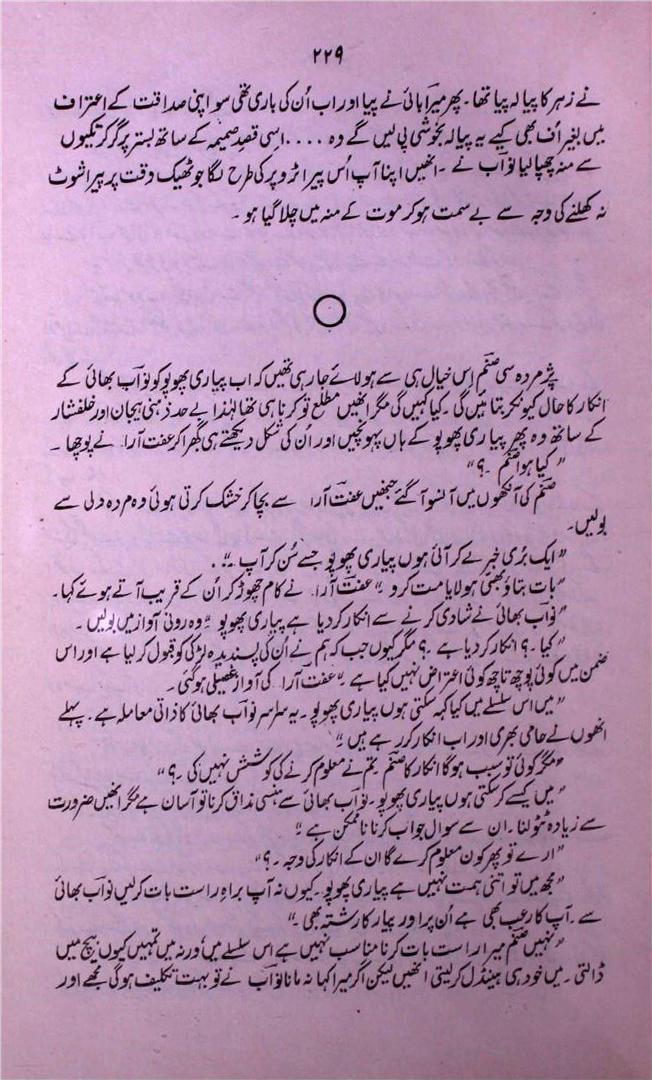 ۲۲۹
نے زہر کا پیالہ پیا تھا۔ پھر میرا بائی نے پیا اور اب اُن کی باری تھی سو اپنی صداقت کے اعتراف
میں بغیر اُف بھی کیے یہ پیالہ بخوشی پی لیں گے وہ .... اسی قصدِ صمیم کے ساتھ بستر پر گر کر تکیوں
سے منہ چھپا لیا نواب نے ۔ انھیں اپنا آپ اُس پیراٹروپر کی طرح لگا جو ٹھیک وقت پر پیراشوٹ
نہ کھلنے کی وجہ سے بے سمت ہو کر موت کے منہ میں چلا گیا ہو ۔
پژمردہ سی صنم اِس خیال ہی سے ہولائے جا رہی تھیں کہ اب پیاری پھوپو کو نواب بھائی کے
انکار کا حال کیونکر بتائیں گی ۔ کیا کہیں گی مگر انھیں مطلع تو کرنا ہی تھا لہٰذا بے حد ذہنی ہیجان اور خلفشار
کے ساتھ وہ پھر پیاری پھوپو کے ہاں پہونچیں اور اُن کی شکل دیکھتے ہی گھبرا کر عفت آرا نے پوچھا ۔
" کیا ہوا صنم ۔؟"
صنم کی آنکھوں میں آنسو آگئے جنھیں عفت آرا سے بچا کر خشک کرتی ہوئی وہ مردہ دلی سے
بولیں۔
"ایک بُری خبر لے کر آئی ہوں پیاری پھوپو جسے سُن کر آپ ۔"
"بات بتاؤ بھئی ہولایا مت کرو ۔" عفت آرا نے کام چھوڑ کر اُن کے قریب آتے ہوئے کہا۔
"نواب بھائی نے شادی کرنے سے انکار کر دیا ہے پیاری پھوپو ۔" وہ رونی آواز میں بولیں ۔
"کیا ۔؟ انکار کر دیا ہے ۔؟ مگر کیوں جب کہ ہم نے اُن کی پسندیدہ لڑکی کو قبول کر لیا ہے اور اس
ضمن میں کوئی پوچھ تاچھ کوئی اعتراض نہیں کیا ہے ۔" عفت آرا کی آواز غصیلی ہو گئی ۔
"میں اس سلسلے میں کیا کہہ سکتی ہوں پیاری پھوپو ۔ یہ سراسر نواب بھائی کا ذاتی معاملہ ہے ۔ پہلے
انھوں نے حامی بھری اور اب انکار کر رہے ہیں ۔"
"مگر کوئی تو سبب ہو گا انکار کا صنم ۔ تم نے معلوم کرنے کی کوشش نہیں کی ۔؟"
"میں کیسے کر سکتی ہوں پیاری پھوپو ۔ نواب بھائی سے ہنسی مذاق کرنا تو آسان ہے مگر انھیں ضرورت
سے زیادہ ٹٹولنا ۔ ان سے سوال جواب کرنا ناممکن ہے ۔"
"ارے تو پھر کون معلوم کرے گا ان کے انکار کی وجہ ۔؟"
"مجھ میں تو اتنی ہمت نہیں ہے پیاری پھوپو ۔ کیوں نہ آپ براہِ راست بات کر لیں نواب بھائی
سے ۔ آپ کا رعب بھی ہے اُن پر اور پیار کا رشتہ بھی ۔"
"نہیں صنم میرا راست بات کرنا مناسب نہیں ہے اس سلسلے میں ورنہ میں تمہیں کیوں بیچ میں
ڈالتی ۔ میں خود ہی ہینڈل کر لیتی انھیں لیکن اگر میرا کہا نہ مانا نواب نے تو بہت تکلیف ہو گی مجھے اور